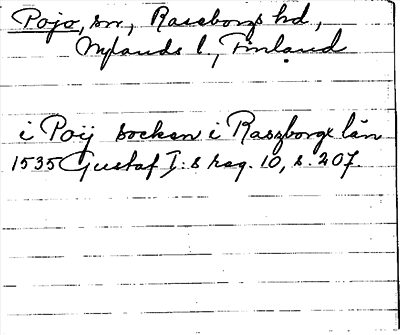 Pojo, sn, Raseborgs hd,
Nylands l., Finland
i Poij socken i Raszborgx län
1535 Gustaf I:s reg. 10, s. 207